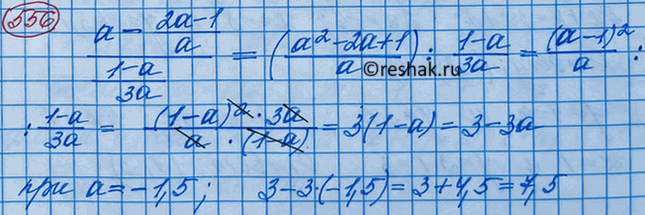 556
a - \frac{2a-1}{a} / \frac{1-a}{3a} = (\frac{a²-2a+1}{a}) : \frac{1-a}{3a} = \frac{(a-1)²}{a} :
©reshak.ru
: \frac{1-a}{3a} = \frac{(1-a)² · 3a}{a · (1-a)} = 3(1-a) = 3-3a
при a = -1,5; 3-3·(-1,5) = 3+4,5 = 7,5